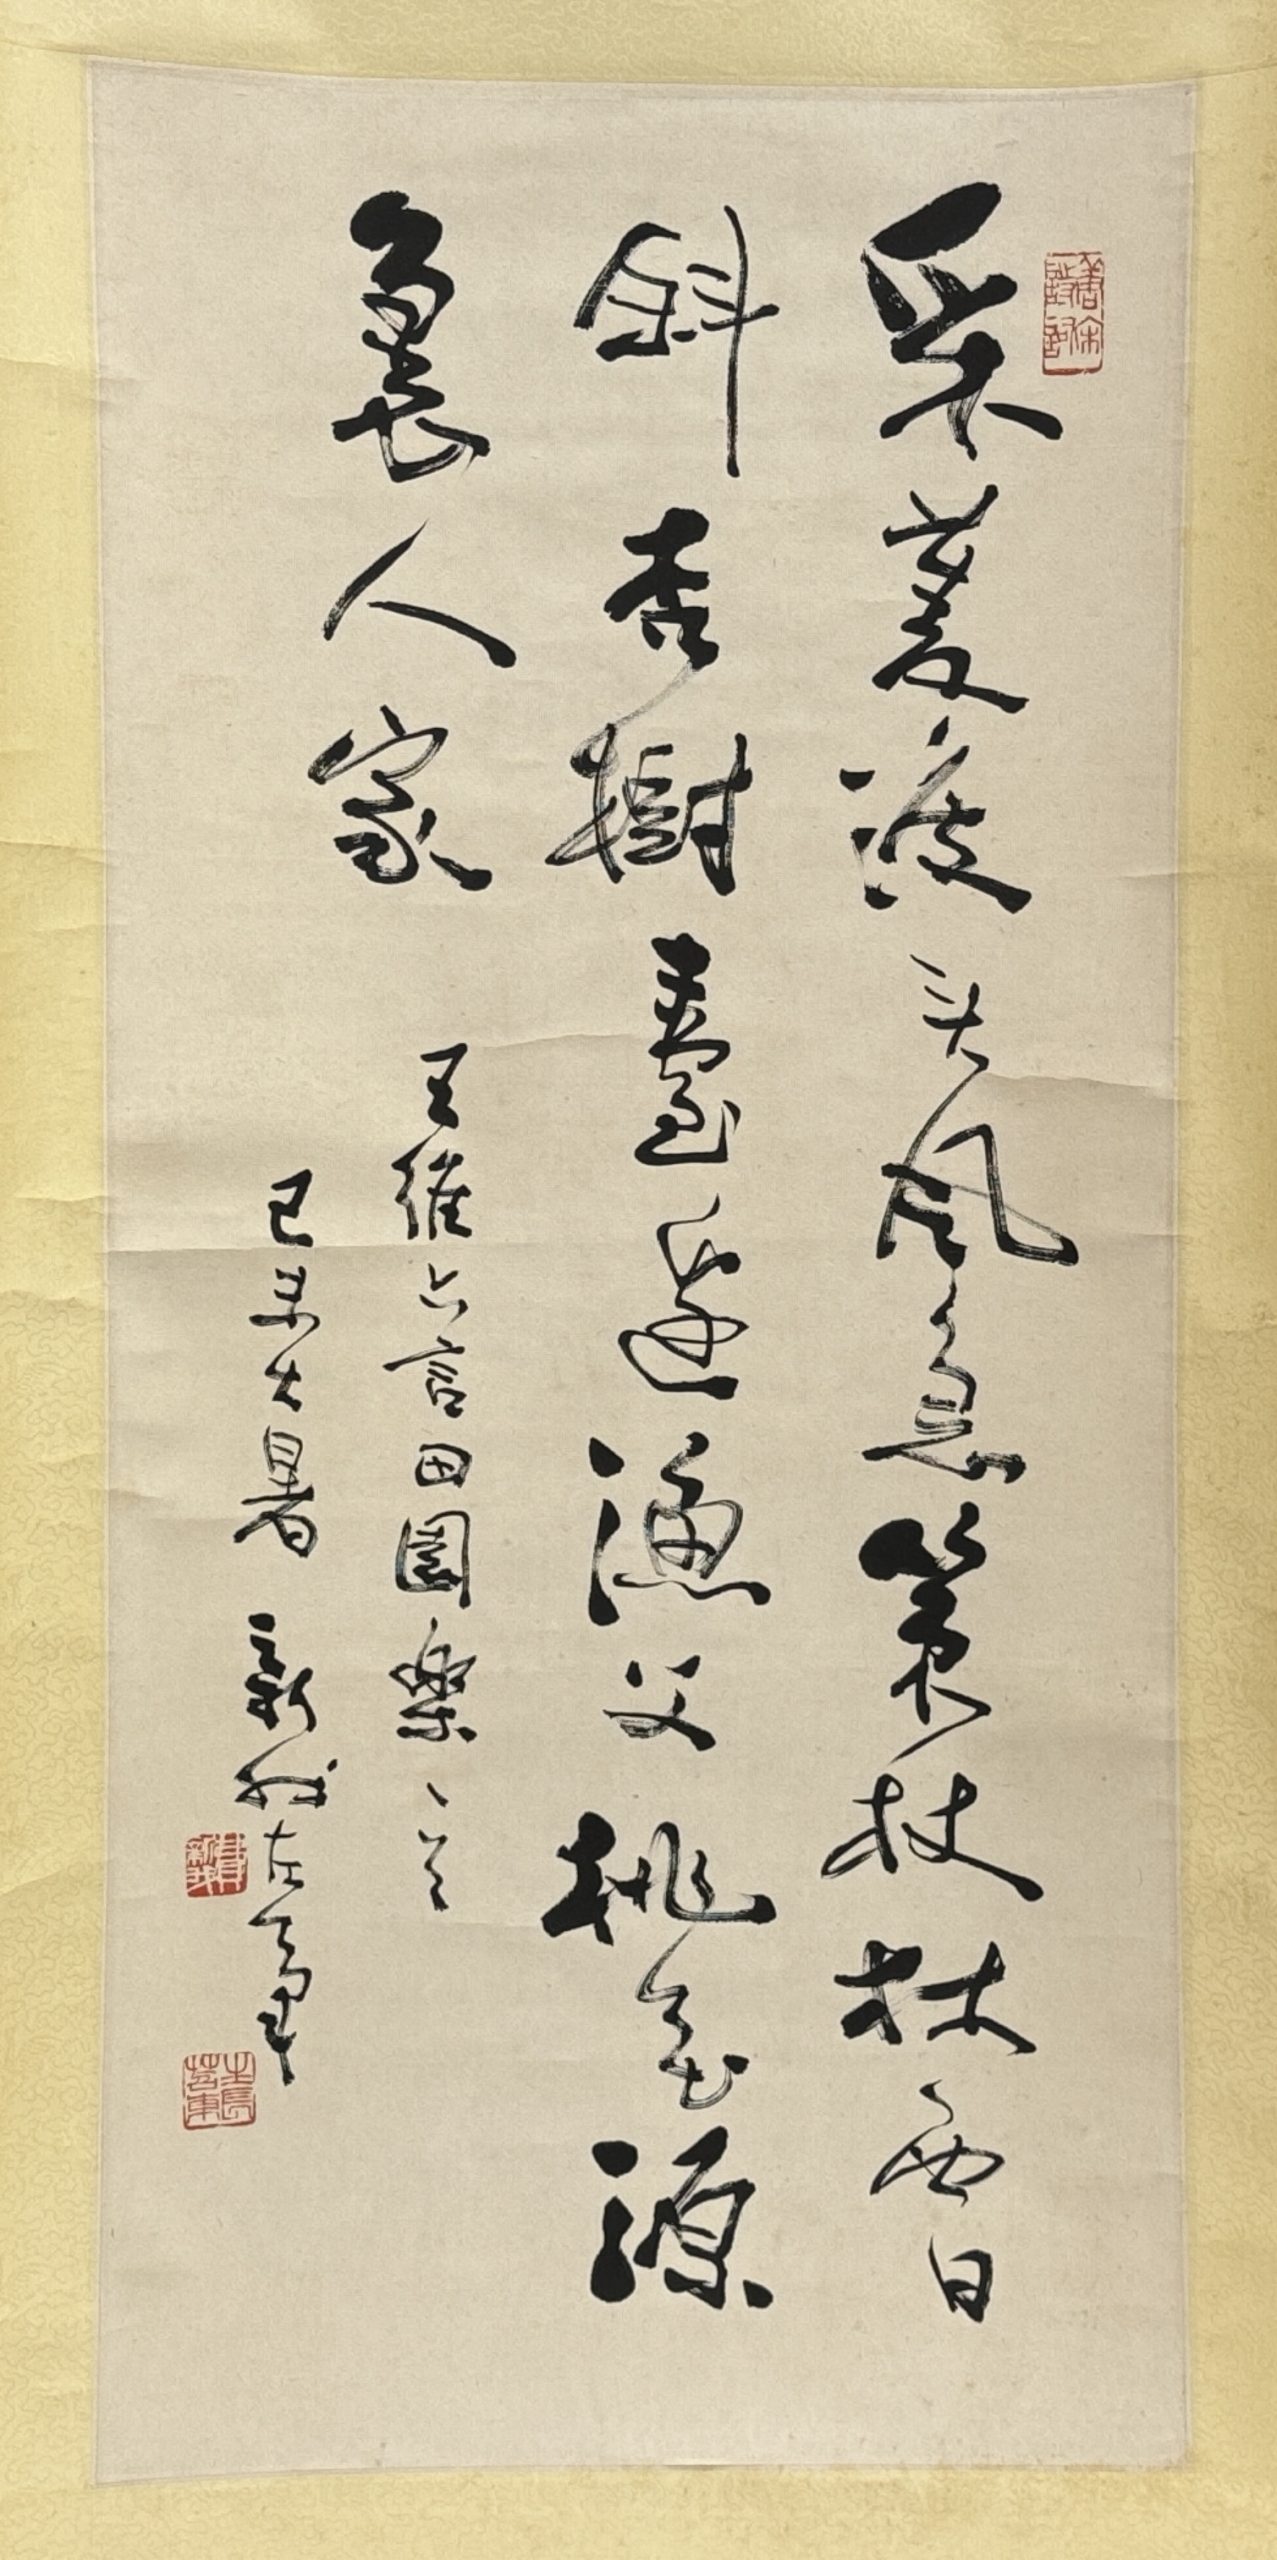 采菱渡头风急策杖林西日
斜杏樹臺邊漁父桃花源
裏人家
王維六言田園樂之一
己未大暑 新我左筆
費新我